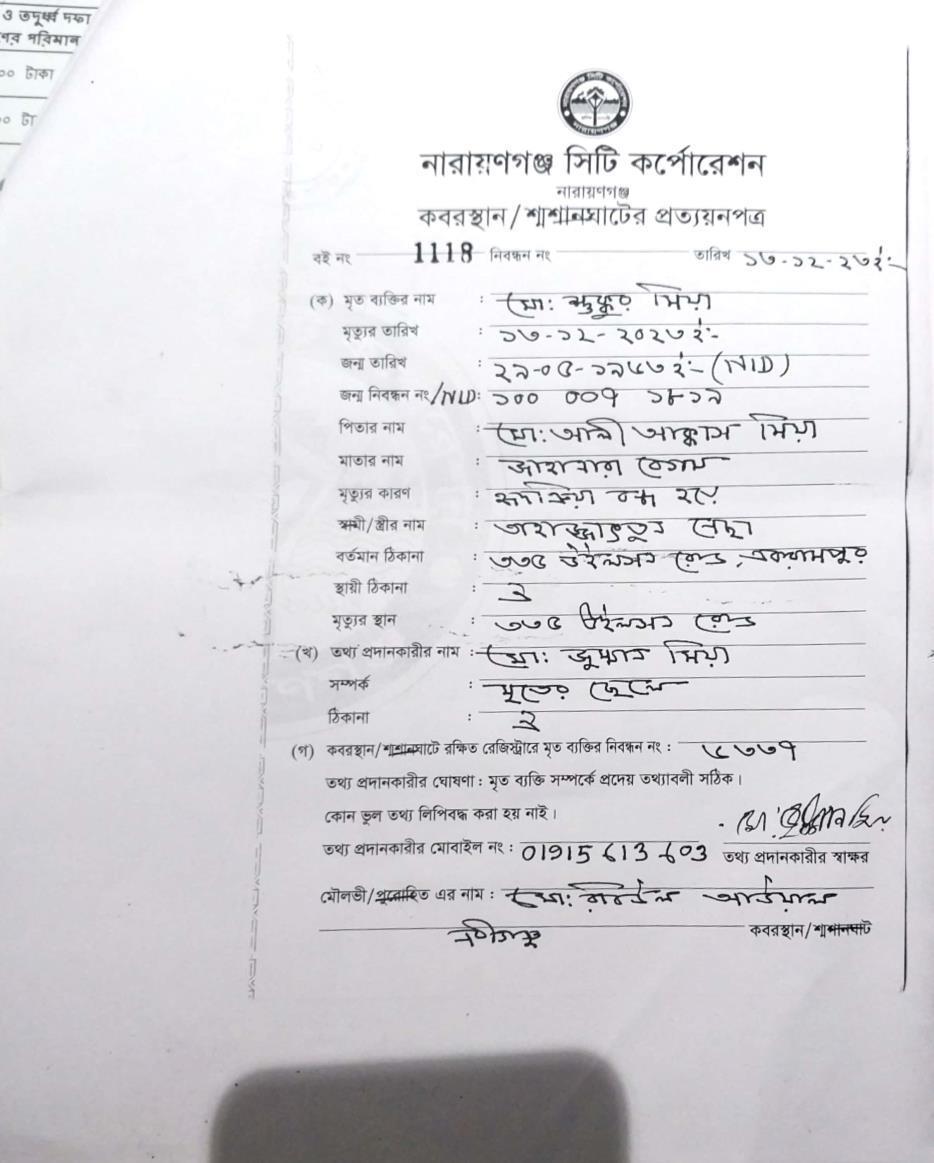 ও তদূর্ধ্ব দফা
পরিমান
০০ টাকা
০ টা
নারায়ণগঞ্জ সিটি কর্পোরেশন
নারায়ণগঞ্জ
নারায়ণগঞ্জ সিটি কর্পোরেশন
নারায়ণগঞ্জ
কবরস্থান/শ্মশানঘাটের প্রত্যয়নপত্র
বই নং 1118 নিবন্ধন নং তারিখ ১৩-১২-২৩ইং-
(ক) মৃত ব্যক্তির নাম : মো: শুক্কুর মিয়া
মৃত্যুর তারিখ : ১৩-১২-২০২৩ইং-
জন্ম তারিখ : ২৯-০৫-১৯৫৩ইং-(NID)
জন্ম নিবন্ধন নং/NID: ১০০ ০০৭ ১৮১৯
পিতার নাম : মো: আলী আক্কাস মিয়া
মাতার নাম : বেগম
মৃত্যুর কারণ : বন্ধ হয়ে
স্বামী/স্ত্রীর নাম : নেছা
বর্তমান ঠিকানা : ৩৩৫ উইলসন রোড, একরামপুর
স্থায়ী ঠিকানা : ঐ
মৃত্যুর স্থান : ৩৩৫ উইলসন রোড
(খ) তথ্য প্রদানকারীর নাম : মো: জুম্মান মিয়া
সম্পর্ক : মৃতের ছেলে
ঠিকানা : ঐ
(গ) কবরস্থান/শ্মশানঘাটে রক্ষিত রেজিস্ট্রারে মৃত ব্যক্তির নিবন্ধন নং : ৫৩৩৭
তথ্য প্রদানকারীর ঘোষণা : মৃত ব্যক্তি সম্পর্কে প্রদেয় তথ্যাবলী সঠিক।
কোন ভুল তথ্য লিপিবদ্ধ করা হয় নাই।
তথ্য প্রদানকারীর মোবাইল নং : 01915 613 603 তথ্য প্রদানকারীর স্বাক্ষর
মৌলভী/পুরোহিত এর নাম : মো:
কবরস্থান/শ্মশানঘাট